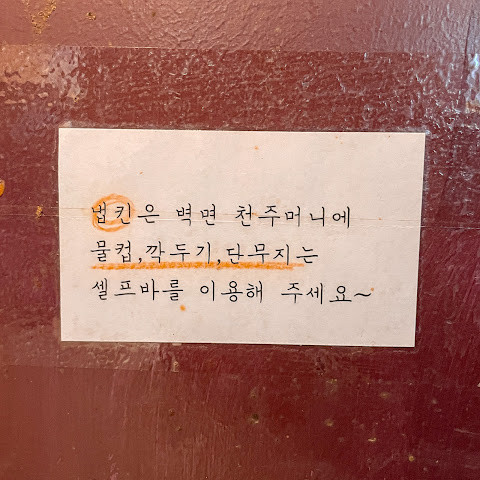 냅킨은 벽면 천주머니에
물컵,깍두기,단무지는
셀프바를 이용해 주세요~